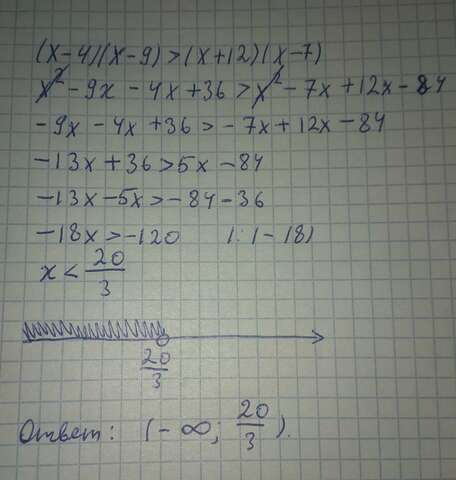 (x-4)(x-9)>(x+12)(x-7)
x²-9x-4x+36>x²-7x+12x-84
-9x-4x+36>-7x+12x-84
-13x+36>5x-84
-13x-5x>-84-36
-18x>-120 |:(-18)
x<20/3
20/3
Ответ: (-∞; 20/3).